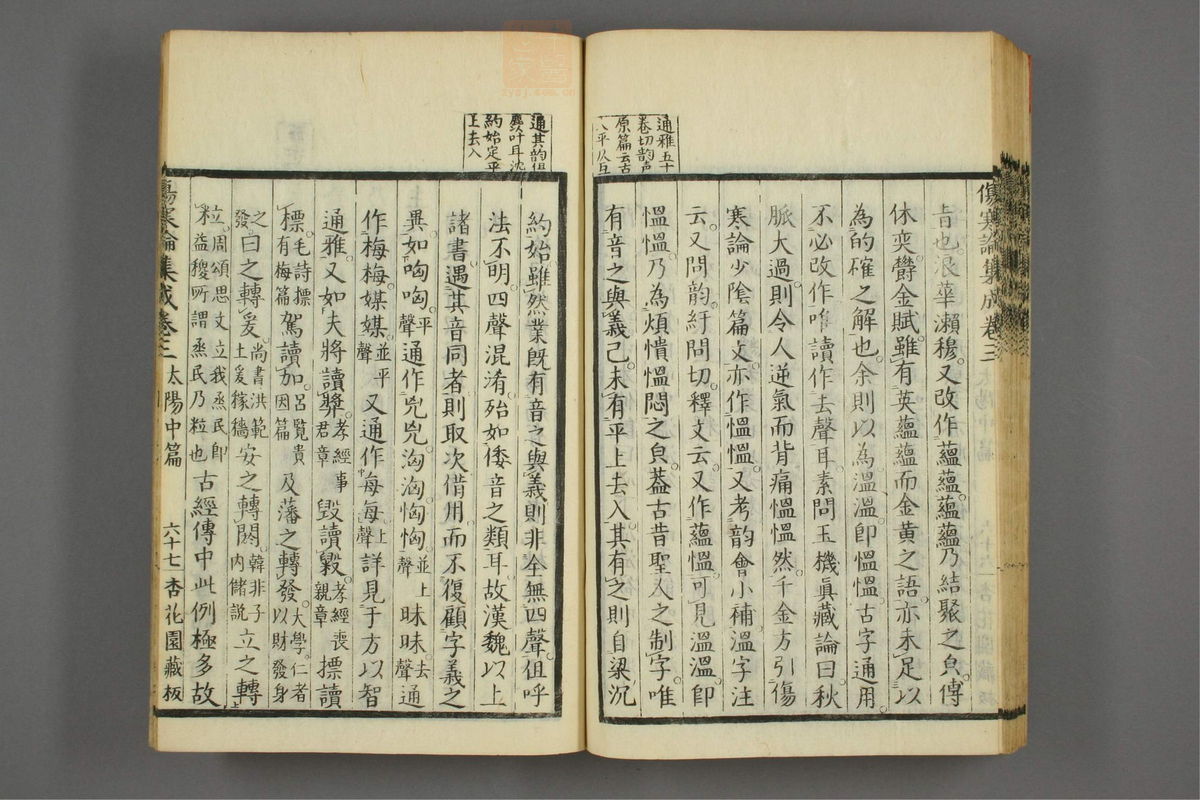 通雅五十
卷切韵声
原篇云古
傷寒論集成卷三
肯也泿華瀬穆又改作蘊蘊蘊蘊乃結聚之皃傅
休奕欝金賦雖有英蘊蘊而金黄之語亦未足以
為的確之解也余則以為溫溫即愠愠古字通用
不必改作唯讀作去聲耳素問玉機眞藏論曰秋
脈大過則令人逆氣而背痛愠愠然千金方引傷
寒論少陰篇文亦作愠愠又考韵會小補溫字注
云又問韵紆問切釋文云又作蘊愠可見溫溫即
愠愠乃為煩憒愠悶之皃葢古昔聖人之制字唯
有音之與義己未有平上去入其有之則自梁沉
通其韵但
叶耳沈
約始定平
上去入
約始雖然業既有音之與義則非全無四聲但呼
法不明四聲混淆殆如倭音之類耳故漢魏以上
諸書遇其音同者則取次借用而不復顧字義之
異如哅哅平聲通作兇兇洶洶恟恟並上聲昧昧去聲通
作梅梅媒媒並平聲又通作每每上聲詳見于方以智
通雅又如夫將讀奬孝經事君章毀讀毀孝經喪親章摽讀
標毛詩摽有梅篇駕讀加呂覧貴因篇及藩之轉發大學仁者以財發身
之發曰之轉爰尚書洪範土爰稼穡安之轉閼韓非子内儲説立之轉
粒周頌思文立我烝民即益稷所謂烝民乃粒也古經傳中此例極多故
傷寒論集成卷三 太陽中篇 六十七 杏花園藏板